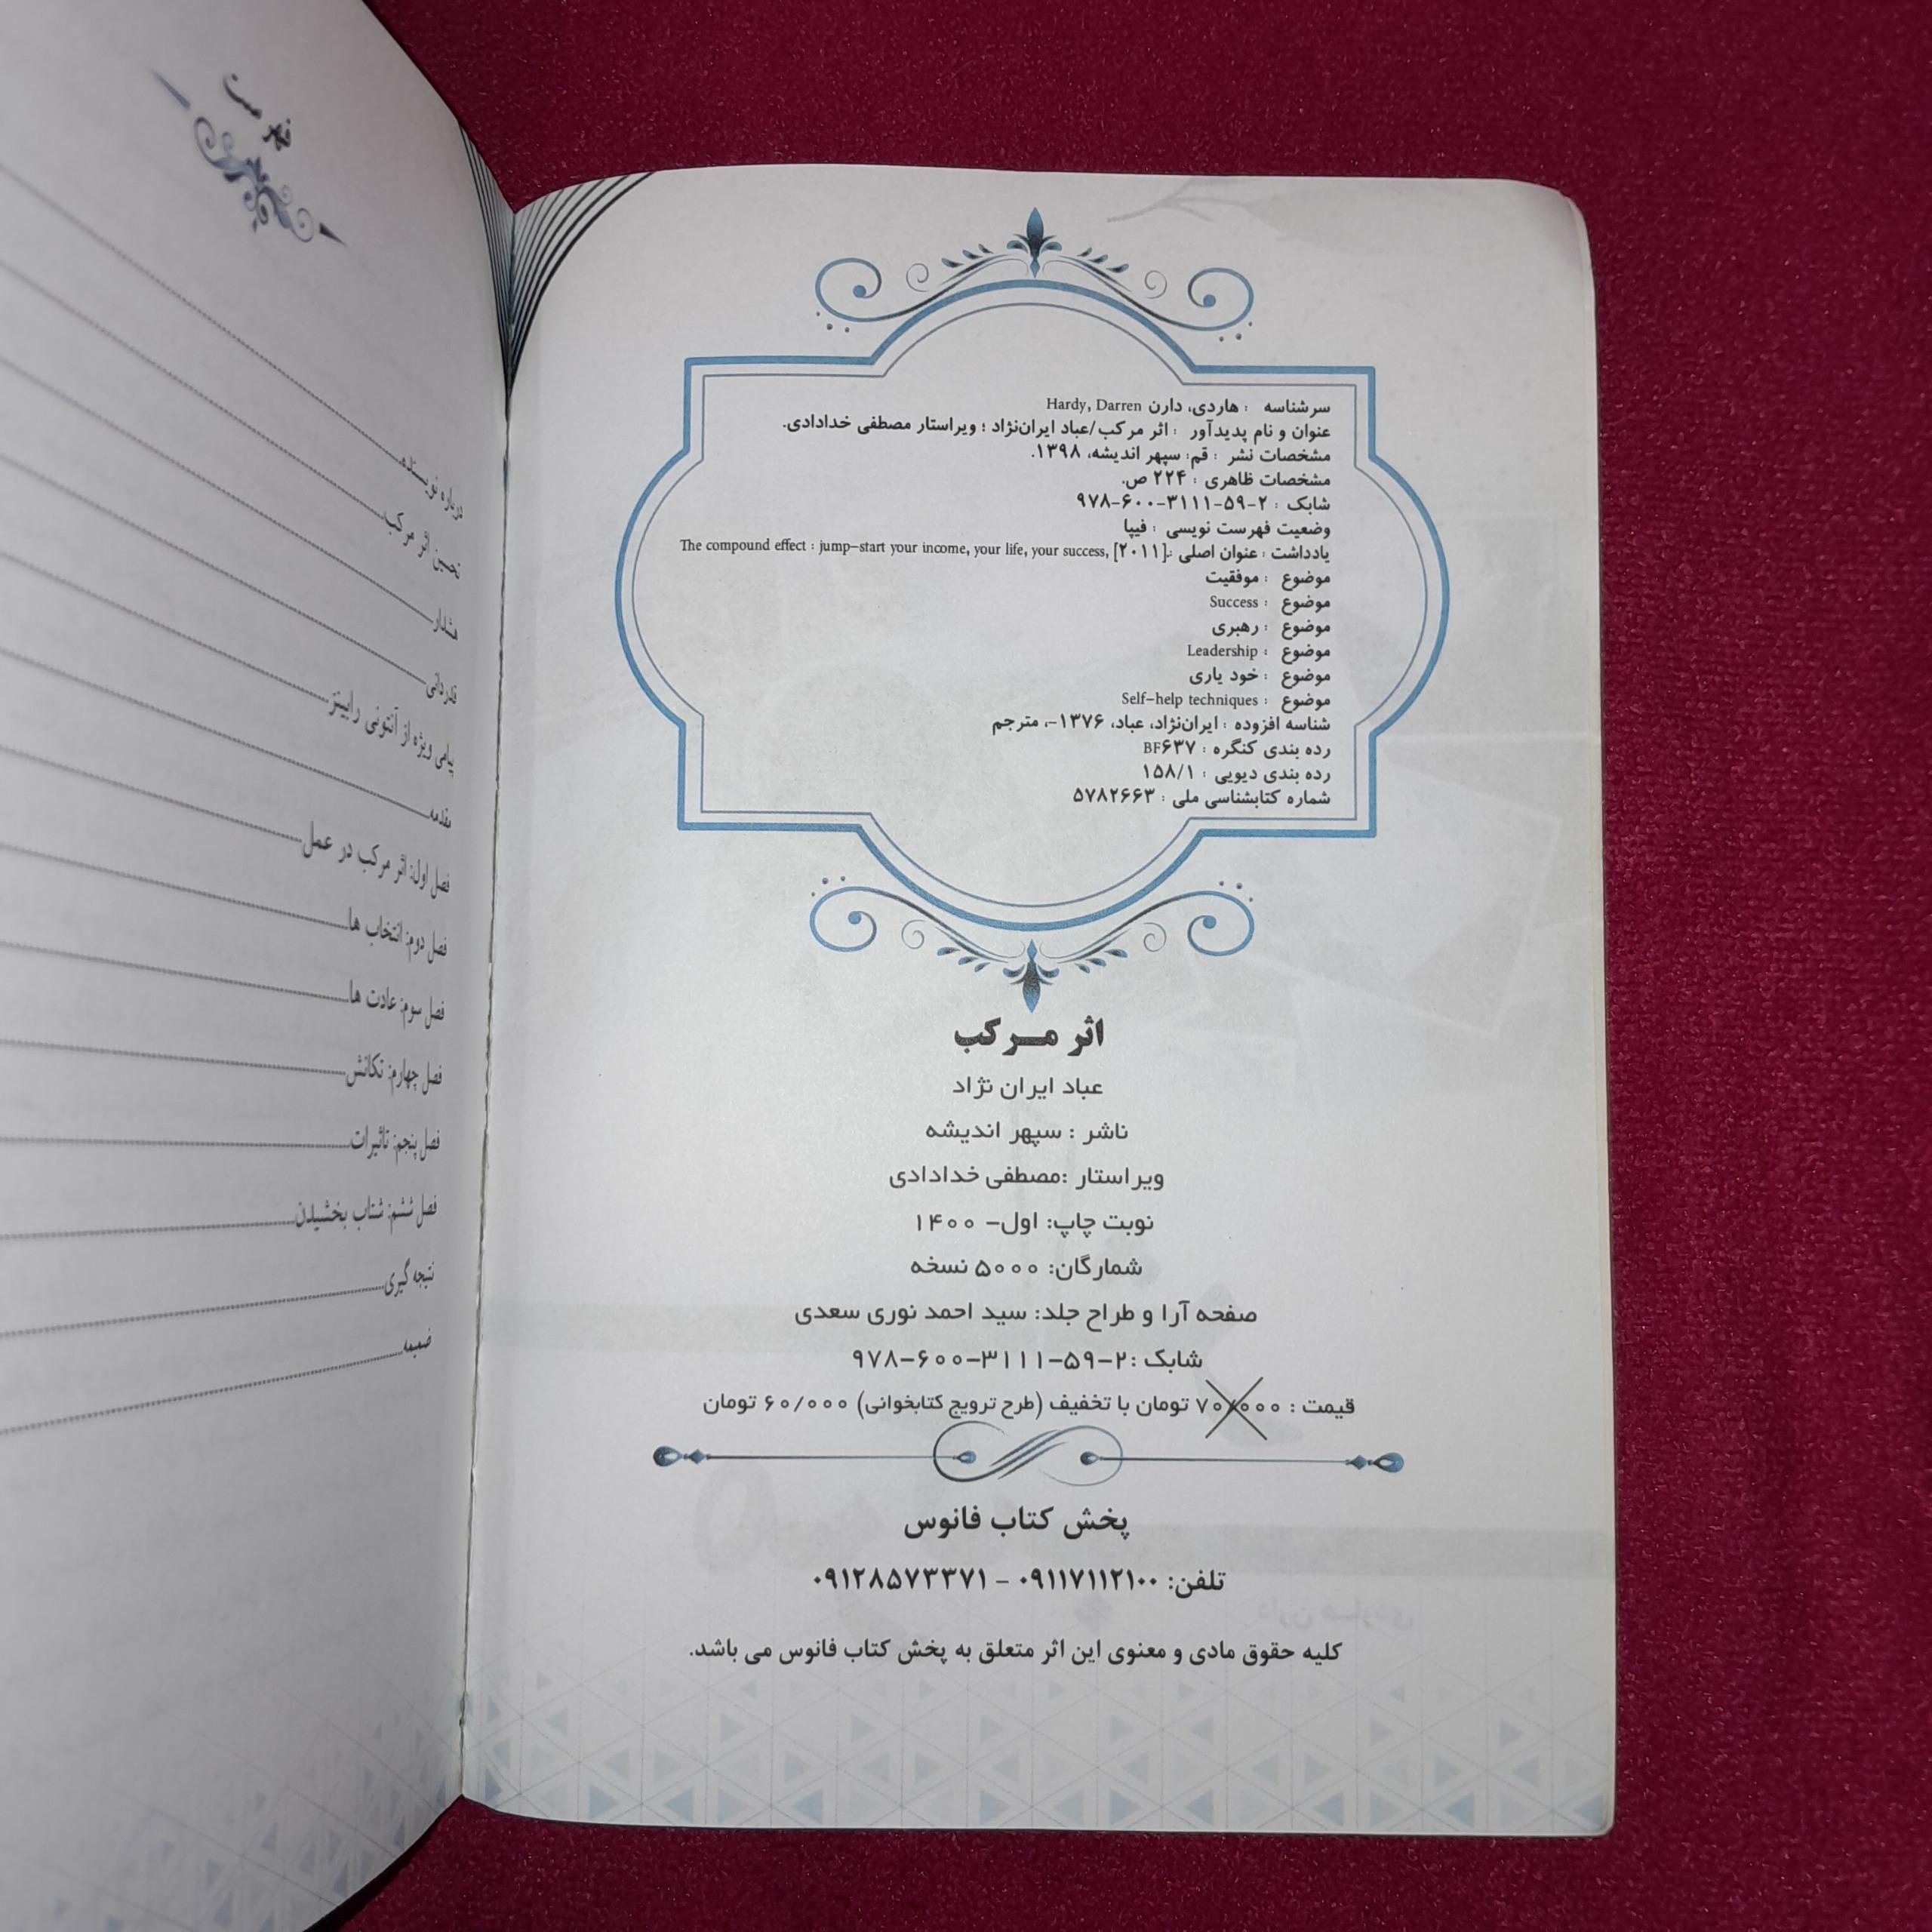 سرشناسه : هاردی، دارن Hardy, Darren
عنوان و نام پدیدآور : اثر مرکب/عباد ایران‌نژاد ؛ ویراستار مصطفی خدادادی.
مشخصات نشر : قم: سپهر اندیشه، ۱۳۹۸.
مشخصات ظاهری : ۲۲۴ ص.
شابک : ۲-۵۹-۳۱۱۱-۶۰۰-۹۷۸
وضعیت فهرست نویسی : فیپا
یادداشت : عنوان اصلی :.The compound effect : jump-start your income, your life, your success, [۲۰۱۱]
موضوع : موفقیت
موضوع : Success
موضوع : رهبری
موضوع : Leadership
موضوع : خود یاری
موضوع : Self-help techniques
شناسه افزوده : ایران‌نژاد، عباد، ۱۳۷۶-، مترجم
رده بندی کنگره : BF۶۳۷
رده بندی دیویی : ۱۵۸/۱
شماره کتابشناسی ملی : ۵۷۸۲۶۶۳
اثر مـرکب
عباد ایران نژاد
ناشر : سپهر اندیشه
ویراستار :مصطفی خدادادی
نوبت چاپ: اول- ۱۴۰۰
شمارگان: ۵۰۰۰ نسخه
صفحه آرا و طراح جلد: سید احمد نوری سعدی
شابک :۲-۵۹-۳۱۱۱-۶۰۰-۹۷۸
قیمت : ۷۰/۰۰۰ تومان با تخفیف (طرح ترویج کتابخوانی) ۶۰/۰۰۰ تومان
پخش کتاب فانوس
تلفن: ۰۹۱۱۷۱۱۲۱۰۰ - ۰۹۱۲۸۵۷۳۳۷۱
کلیه حقوق مادی و معنوی این اثر متعلق به پخش کتاب فانوس می باشد.
فهرست
درباره نویسنده
تحسین اثر مرکب
هشدار
قدردانی
پیامی ویژه از آنتونی رابینز
مقدمه
فصل اول: اثر مرکب در عمل
فصل دوم: انتخاب ها
فصل سوم: عادت ها
فصل چهارم: تکانش
فصل پنجم: تاثیرات
فصل ششم: شتاب بخشیدن
نتیجه گیری
ضمیمه